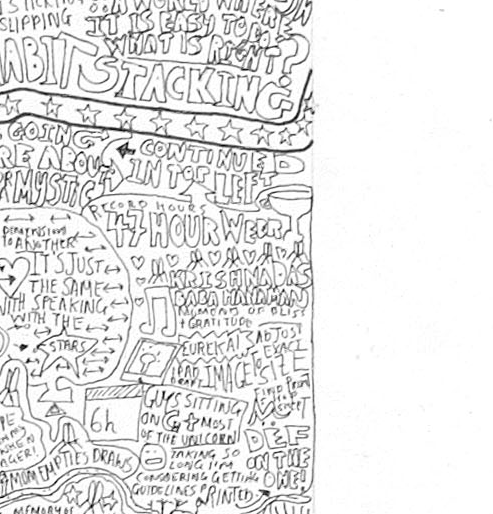 SLIPPING
A WORLD WHERE
IT IS EASY TO DO
WHAT IS RIGHT?
HABIT STACKING
GOING
CONTINUED
IN TOP LEFT
MYSTIC
RECORD HOURS
47 HOUR WEEK
TO ANOTHER
IT'S JUST
THE SAME
WITH SPEAKING
WITH THE
STARS
KRISHNA DAS
BABA HANUMAN
MOMENTS OF BLISS
+ GRATITUDE
EUREKA!
ADJUST
TO EXACT
SIZE
IMAGE
6h
GUYS SITTING
ON G + MOST
OF THE UNICORN
TAKING SO
LONG I'M
CONSIDERING GETTING
GUIDELINES PRINTED
DEF
ON THE
ONE!
MUM EMPTIES DRAWS
MEMORY OF